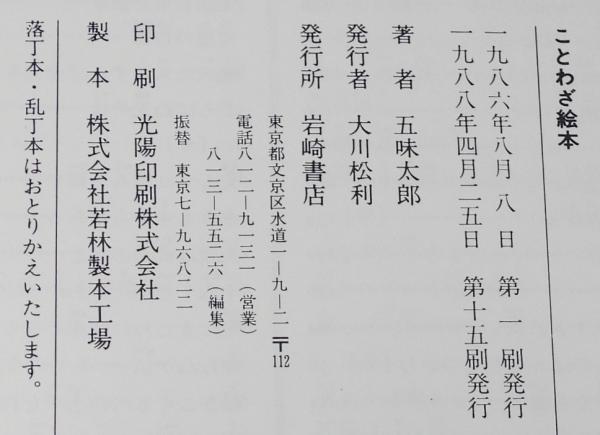 ことわざ絵本
一九八六年八月 八 日 第 刷発行
一九八八年四月二五日 第十五刷発行
著 者 五味太郎
発行者 大川松利
発行所 岩崎書店
東京都文京区水道一―九―二 〒112
電話八一二―九一三一（営業）
八一三―五五二六（編集）
振替 東京七―九六八二二
印 刷 光陽印刷株式会社
製 本 株式会社若林製本工場
落丁本・乱丁本はおとりかえいたします。